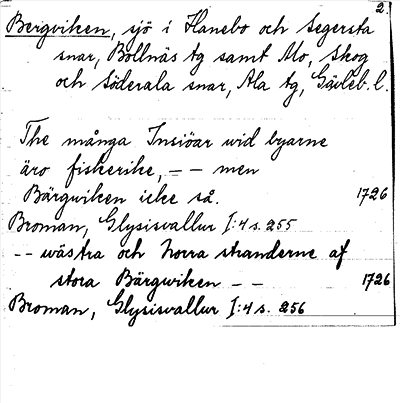 2.
Bergviken, sjö i Hanebo och Segersta
snar, Bollnäs tg samt Mo, Skog
och Söderala snar, Ala tg, Gävleb. l.
The många Insiöar wid byarne
äro fiskerike, -- men
Bärgwiken icke så. 1726
Broman, Glysisvallur I:4 s. 255
-- wästra och norra stranderne af
stora Bärgwiken -- 1726
Broman, Glysisvallur I:4 s. 256